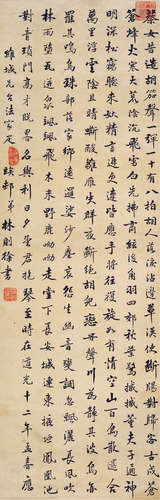 蔡女昔造胡笳聲一彈一十有八拍胡人落淚沾邊草漢使斷腸對歸客古戍蒼
蒼烽火寒大荒陰沉飛雪白先拂商絃後角羽四郊秋葉驚摵摵董夫子通神
明深松竊聽來妖精言遲更速皆應手將往復旋如有情空山百鳥散還合
萬里浮雲陰且晴嘶酸雛雁失羣夜斷絕胡兒戀母聲川為靜其波鳥亦
罷其鳴烏珠部落家鄉遠邏娑沙塵哀怨生幽音變調忽飄灑長風吹
林雨墮瓦迸泉颯颯飛木末野鹿呦呦走堂下長安城連東掖垣鳳凰池
對青瑣門高才脫略名與利日夕望君抱琴至時在道光十二年五喜應
城先生法家正 弟林則徐書